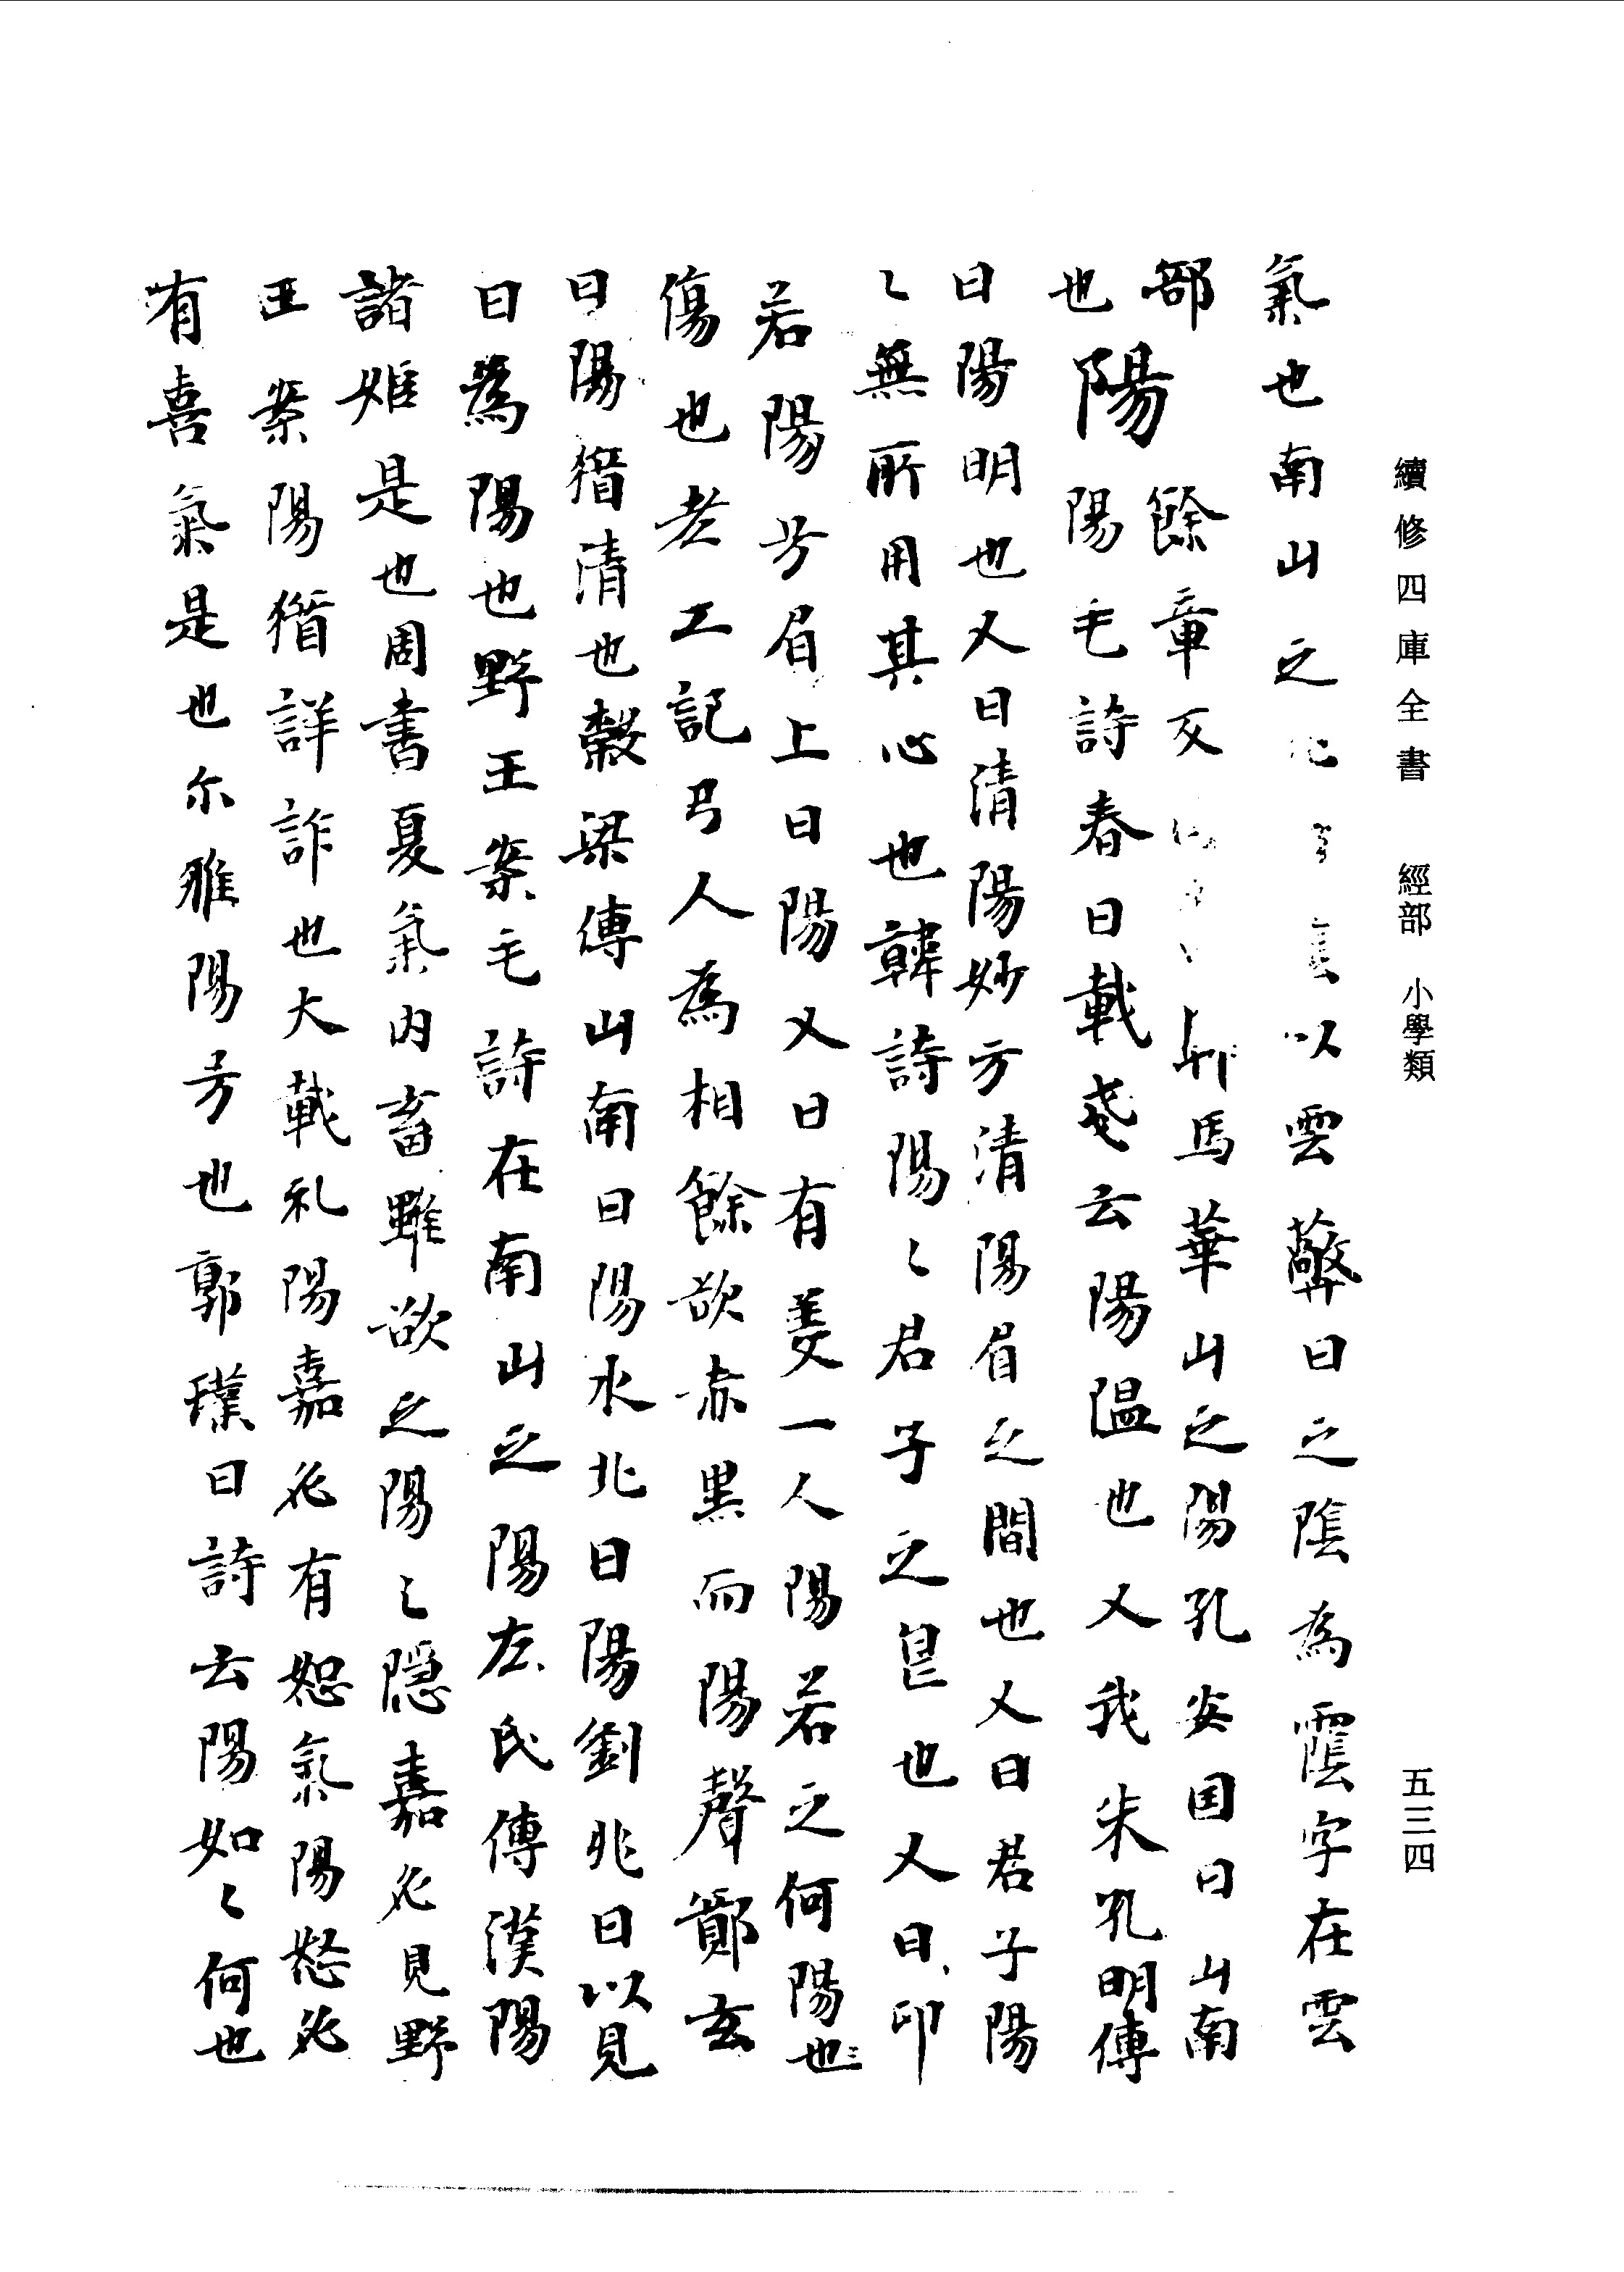 續修四庫全書 經部 小學類 五三四
氣也南山之以雲蔽曰之陰為霒字在雲
部餘章反馬華山之陽孔安国曰山南
也陽陽毛詩春日載陽戔云陽温也又我朱孔明傳
曰陽明也又曰清陽妙方清陽眉之間也又曰君子陽
〻無所用其心也韓詩陽〻君子之皃也又曰印
若陽兮眉上曰陽又曰有羑一人陽若之何陽也
傷也考工記弓人為相餘欲赤黒而陽聲鄭玄
曰陽猶清也榖梁傳山南曰陽水北曰陽劉兆曰以見
曰為陽也野王案毛詩在南山之陽左氏傳漢陽
諸姬是也周書夏氣内畜雖欲之陽〻隠嘉必見野
王案陽猶詳詐也大載礼陽嘉必有恕氣陽愁必
有喜氣是也尒雅陽号也郭璞曰詩云陽如〻何也